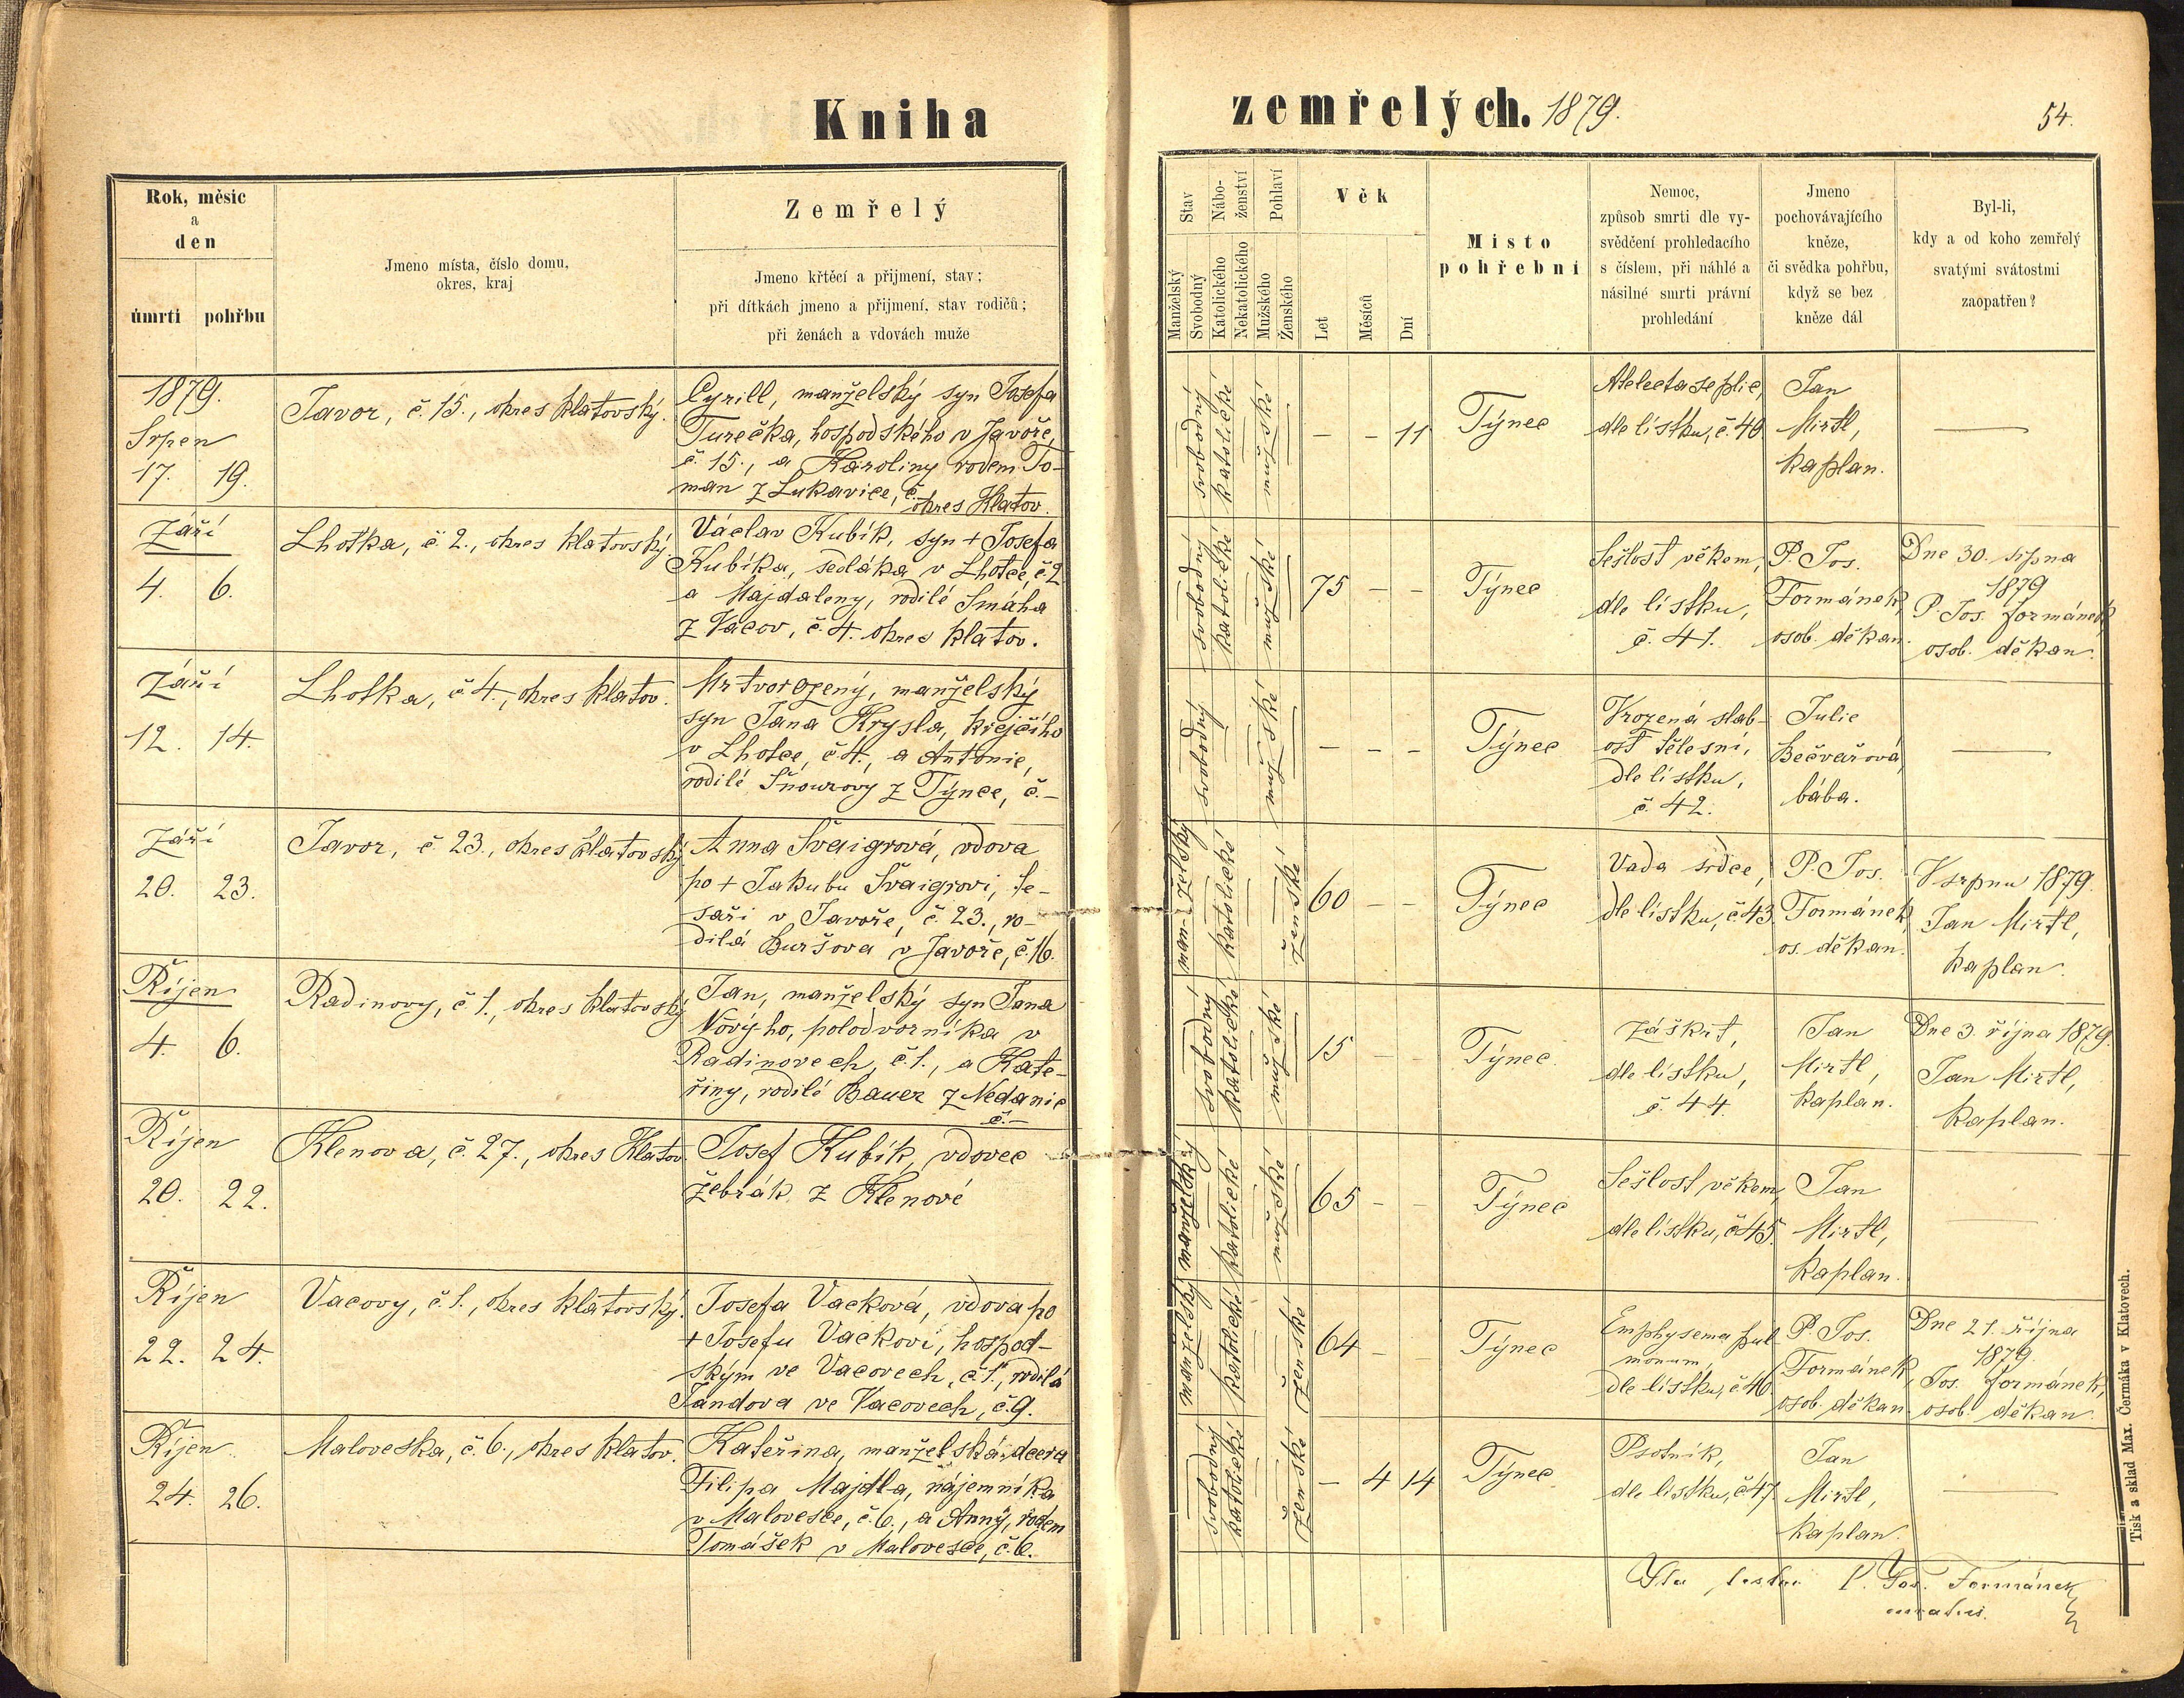 Kniha zemřelých. 1879.
54.
Rok, měsíc
a
den
úmrtí pohřbu
Jmeno místa, číslo domu,
okres, kraj
Zemřelý
Jmeno křtěcí a přijmení, stav;
při dítkách jmeno a přijmení, stav rodičů;
při ženách a vdovách muže
Stav
Manželský
Svobodný
Nábo-
ženství
Katolického
Nekatolického
Pohlaví
Mužského
Ženského
Věk
Let
Měsíců
Dní
Místo
pohřební
Nemoc,
způsob smrti dle vy-
svědčení prohledacího
s číslem, při náhlé a
násilné smrti právní
prohledání
Jmeno
pochovávajícího
kněze,
či svědka pohřbu,
když se bez
kněze dál
Byl-li,
kdy a od koho zemřelý
svatými svátostmi
zaopatřen?
1879.
Srpen
17. 19.
Javor, č. 15., okres klatovský.
Cyrill, manželský syn Josefa
Turečka, hospodského v Javoře,
č. 15., a Karoliny rodem To-
man z Lukavice, č.
okres Klatov.
svobodný
katolické
mužské
— – 11
Týnec
Atelectase plic,
dle lístku, č. 40
Jan
Mirtl,
kaplan.
—
Září
4. 6.
Lhotka, č. 2., okres klatovský.
Václav Kubík, syn + Josefa
Kubíka, sedláka v Lhotce, č. 2
a Majdaleny, rodilé Smáha
z Vacov, č. 4. okres klatov.
svobodný
katolické
mužské
75 – –
Týnec
Sešlost věkem,
dle lístku,
č. 41.
P. Jos.
Formánek,
osob. děkan.
Dne 30. srpna
1879
P. Jos. Formánek
osob. děkan.
Září
12. 14.
Lhotka, č. 4., okres klatov.
Mrtvorozený, manželský
syn Jana Krysla, krejčího
v Lhotce, č. 4., a Antonie,
rodilé Šnourovy z Týnce, č. –
svobodný
mužské
– – –
Týnec
Vrozená slab-
ost tělesní,
dle lístku,
č. 42.
Julie
Bečvařová,
bába.
—
Září
20. 23.
Javor, č. 23., okres klatovský.
Anna Švaigrová, vdova
po + Jakubu Švaigrovi, te-
saři v Javoře, č. 23., ro-
dilá Buršova v Javoře, č. 16.
manželský
katolické
ženské
60 – –
Týnec
Vada srdce,
dle lístku, č. 43.
P. Jos.
Formánek,
os. děkan.
V srpnu 1879.
Jan Mirtl,
kaplan.
Říjen
4. 6.
Radinovy, č. 1., okres klatovský
Jan, manželský syn Jana
Novýho, polodvorníka v
Radinovech, č. 1., a Kate-
řiny, rodilé Bauer z Nedanic
č. –
svobodný
katolické
mužské
15 – –
Týnec.
Záškrt,
dle lístku,
č. 44.
Jan
Mirtl,
kaplan.
Dne 3. října 1879.
Jan Mirtl,
kaplan.
Říjen
20. 22.
Klenova, č. 27., okres Klatov.
Josef Kubík, vdovec
žebrák z Klenové
manželský
katolické
mužské
65 – –
Týnec
Sešlost věkem,
dle lístku, č. 45.
Jan
Mirtl,
kaplan.
—
Říjen
22. 24.
Vacovy, č. 1., okres klatovský.
Josefa Vacková, vdova po
+ Josefu Vackovi, hospod-
ským ve Vacovech, č. 1., rodilá
Jandova ve Vacovech, č. 9.
manželský
katolické
ženské
64 – –
Týnec
Emphysema pul-
monum,
dle lístku, č. 46.
P. Jos.
Formánek,
osob. děkan
Dne 21. října
1879.
Jos. Formánek,
osob. děkan.
Říjen
24. 26.
Maloveska, č. 6., okres klatov.
Kateřina, manželská dcera
Filipa Majdla, nájemníka
v Malovesce, č. 6., a Anny, rodem
Tomášek v Malovesce, č. 6.
svobodný
katolické
ženské
– 4 14
Týnec
Psotník,
dle lístku, č. 47.
Jan
Mirtl,
kaplan.
—
P. Jos. Formánek
curatus.
Tisk a sklad Max. Čermáka v Klatovech.